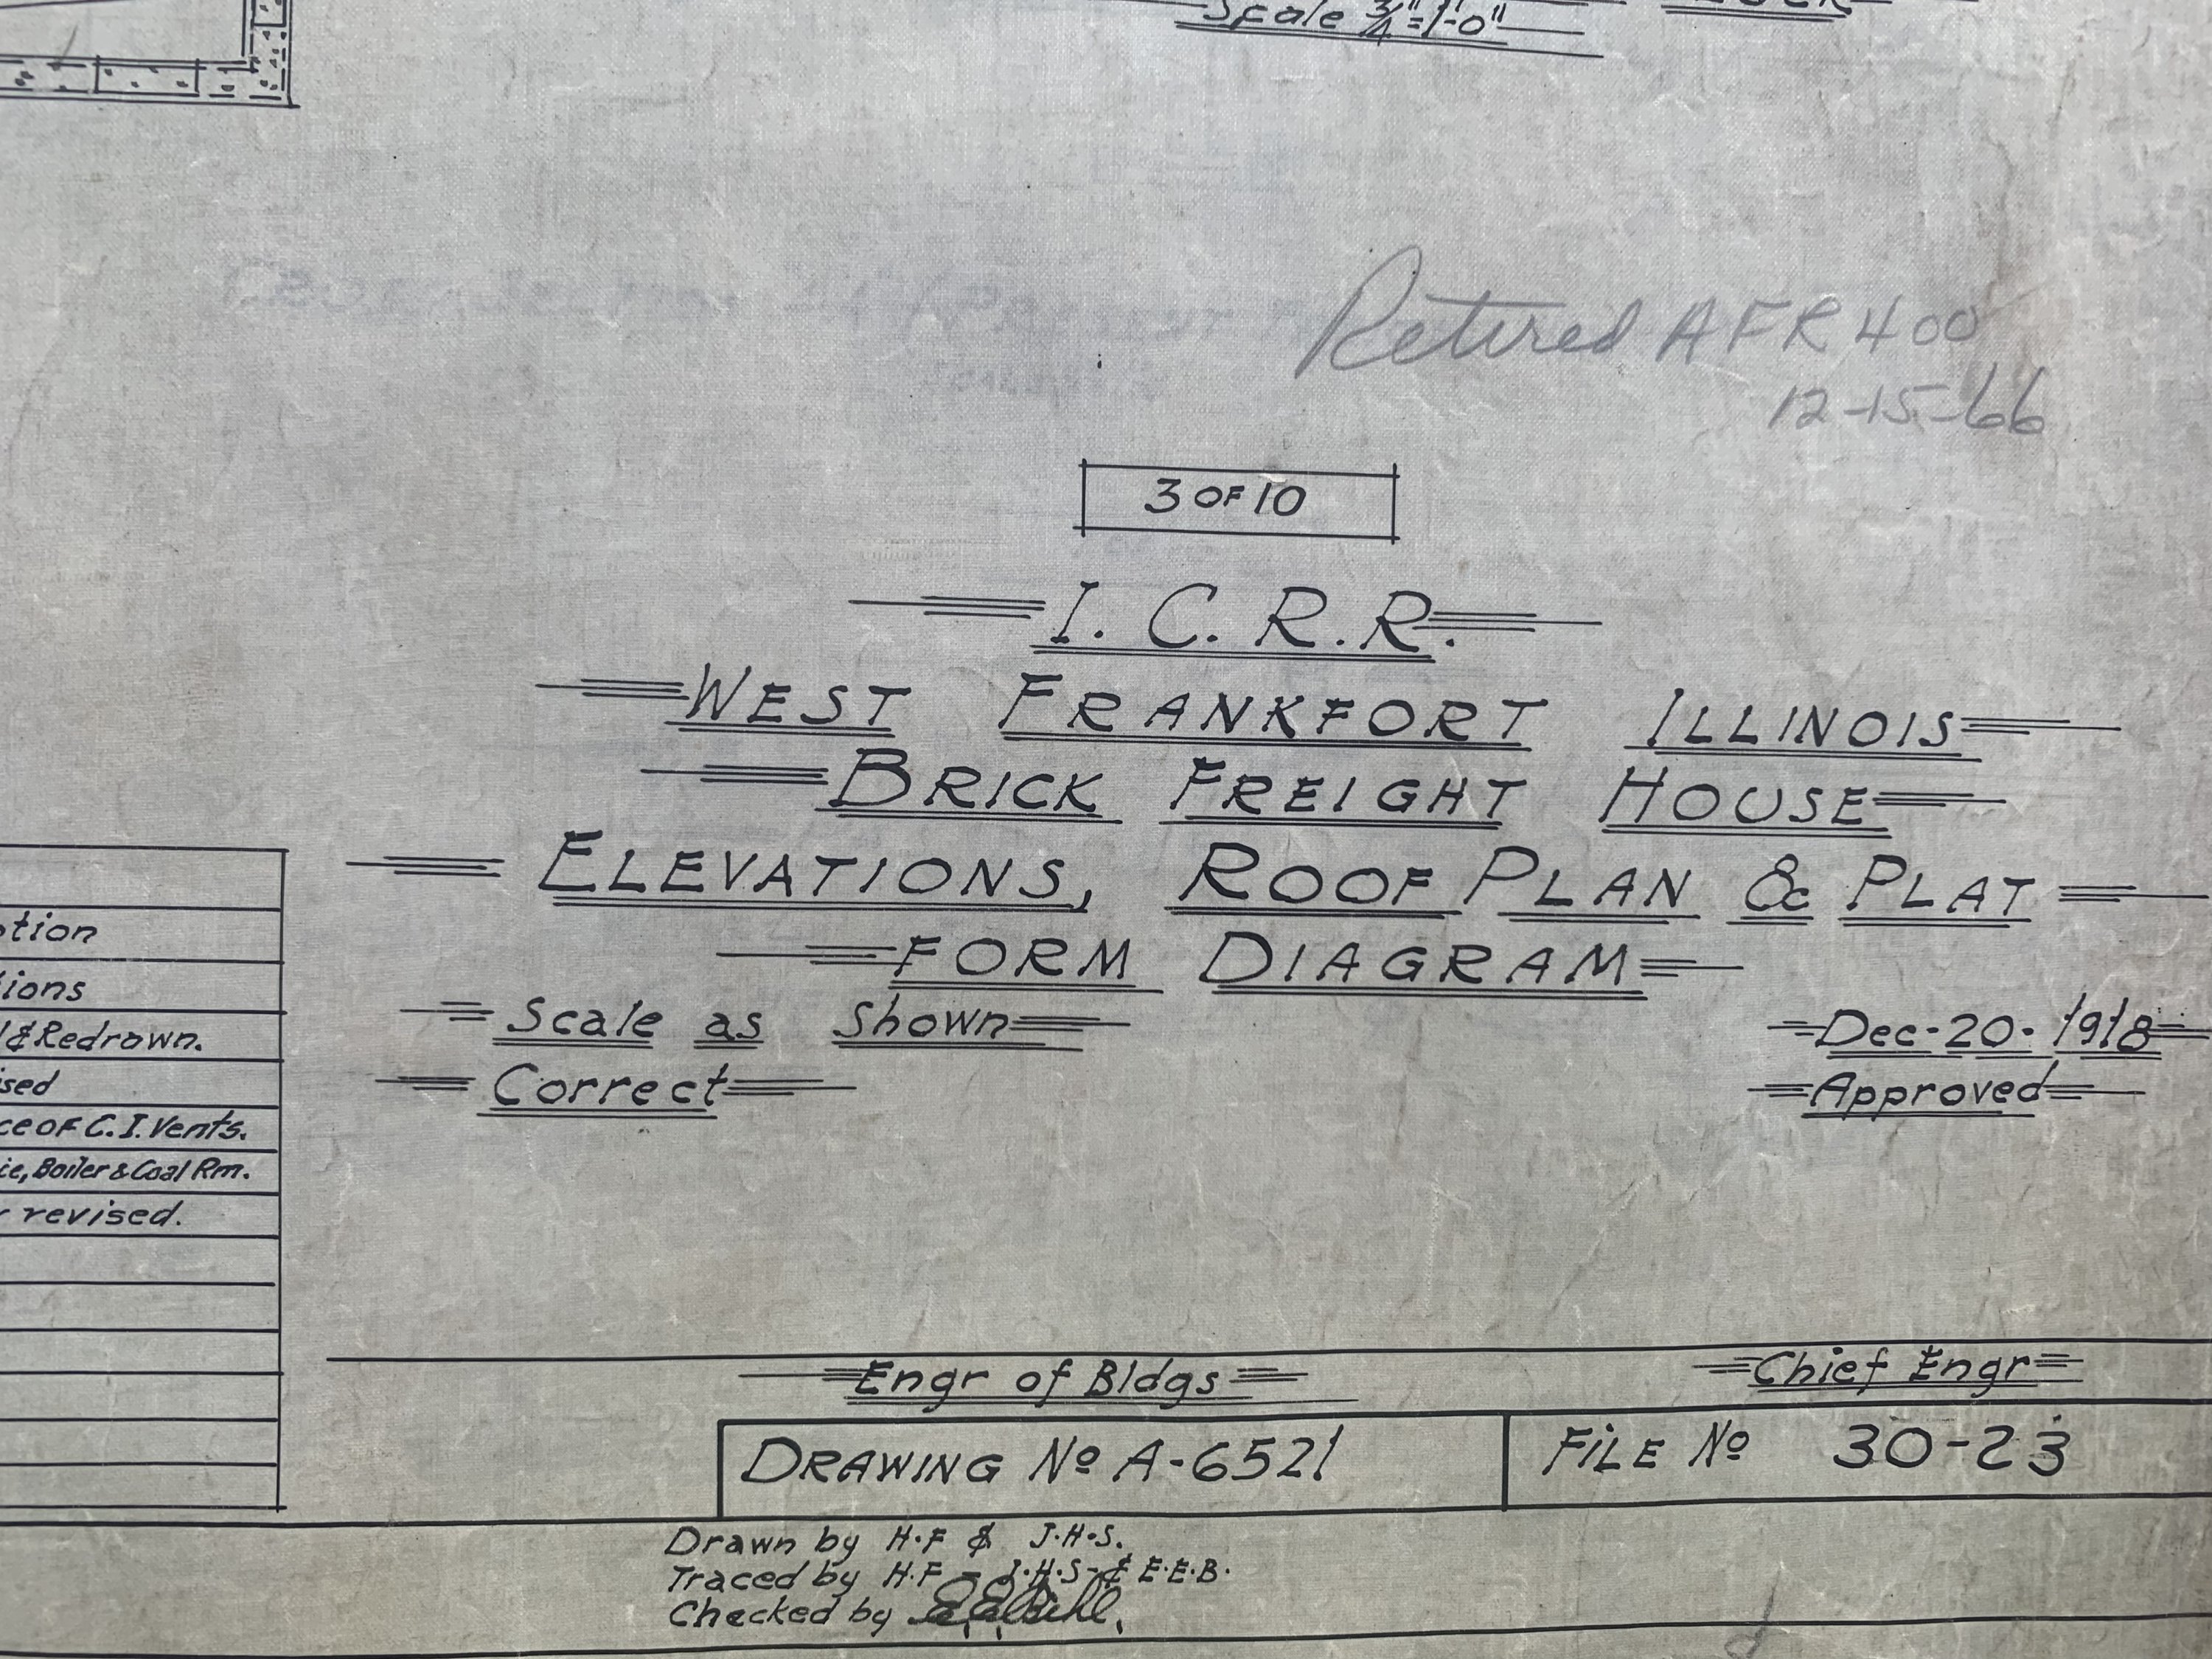 Scale 3/4"=1'-0"
Retired AFR 400
12-15-66
3 OF 10
I. C. R. R.
WEST FRANKFORT ILLINOIS
BRICK FREIGHT HOUSE
ELEVATIONS, ROOF PLAN & PLAT
FORM DIAGRAM
Scale as shown
Dec-20-1918
Correct
Approved
otion
ions
& Redrawn.
sed
ce of C.I. Vents.
ie, Boiler & Coal Rm.
revised.
Engr of Bldgs
Chief Engr
DRAWING No A-6521
FILE No 30-23
Drawn by H.F & J.H.S.
Traced by H.F - J.H.S - & E.E.B.
Checked by